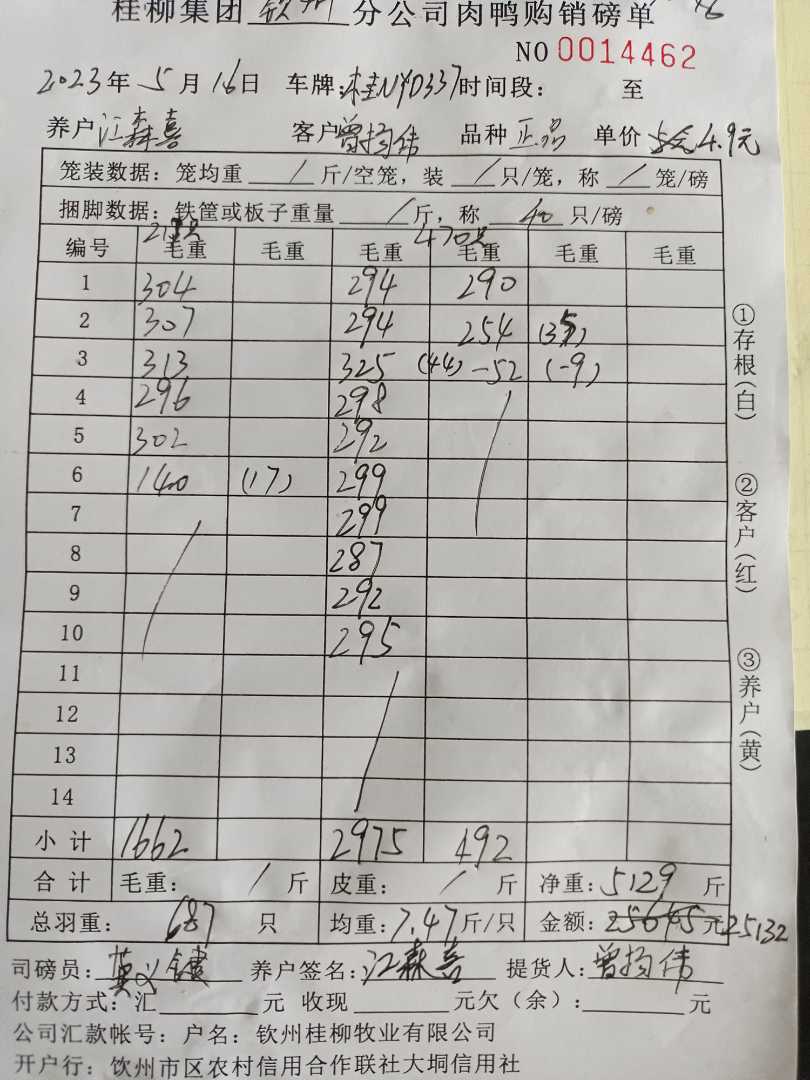 桂柳集团 钦州 分公司肉鸭购销磅单
NO 0014462
2023年 5 月 16日 车牌:桂NYD337时间段: 至
养户 江森喜 客户 曾扬伟 品种 正品 单价 5元4.9元
笼装数据: 笼均重 / 斤/空笼, 装 / 只/笼, 称 / 笼/磅
捆脚数据: 铁筐或板子重量 / 斤, 称 40 只/磅
编号 毛重 毛重 毛重 470只 毛重 毛重 毛重
1 304 294 290
2 307 294 254
3 313 325 (44) -52 (-9)
4 296 298
5 302 292
6 140 (17) 299
7 299
8 287
9 292
10 295
11
12
13
14
小计 1662 2975 492
合计 毛重: / 斤 皮重: / 斤 净重: 5129 斤
总羽重: 687 只 均重: 7.47 斤/只 金额: 25645 元 25132
司磅员: 养户签名: 江森喜 提货人: 曾扬伟
付款方式: 汇 元 收现 元欠（余）: 元
公司汇款帐号: 户名: 钦州桂柳牧业有限公司
开户行: 钦州市区农村信用合作联社大垌信用社
①存根(白)
②客户(红)
③养户(黄)